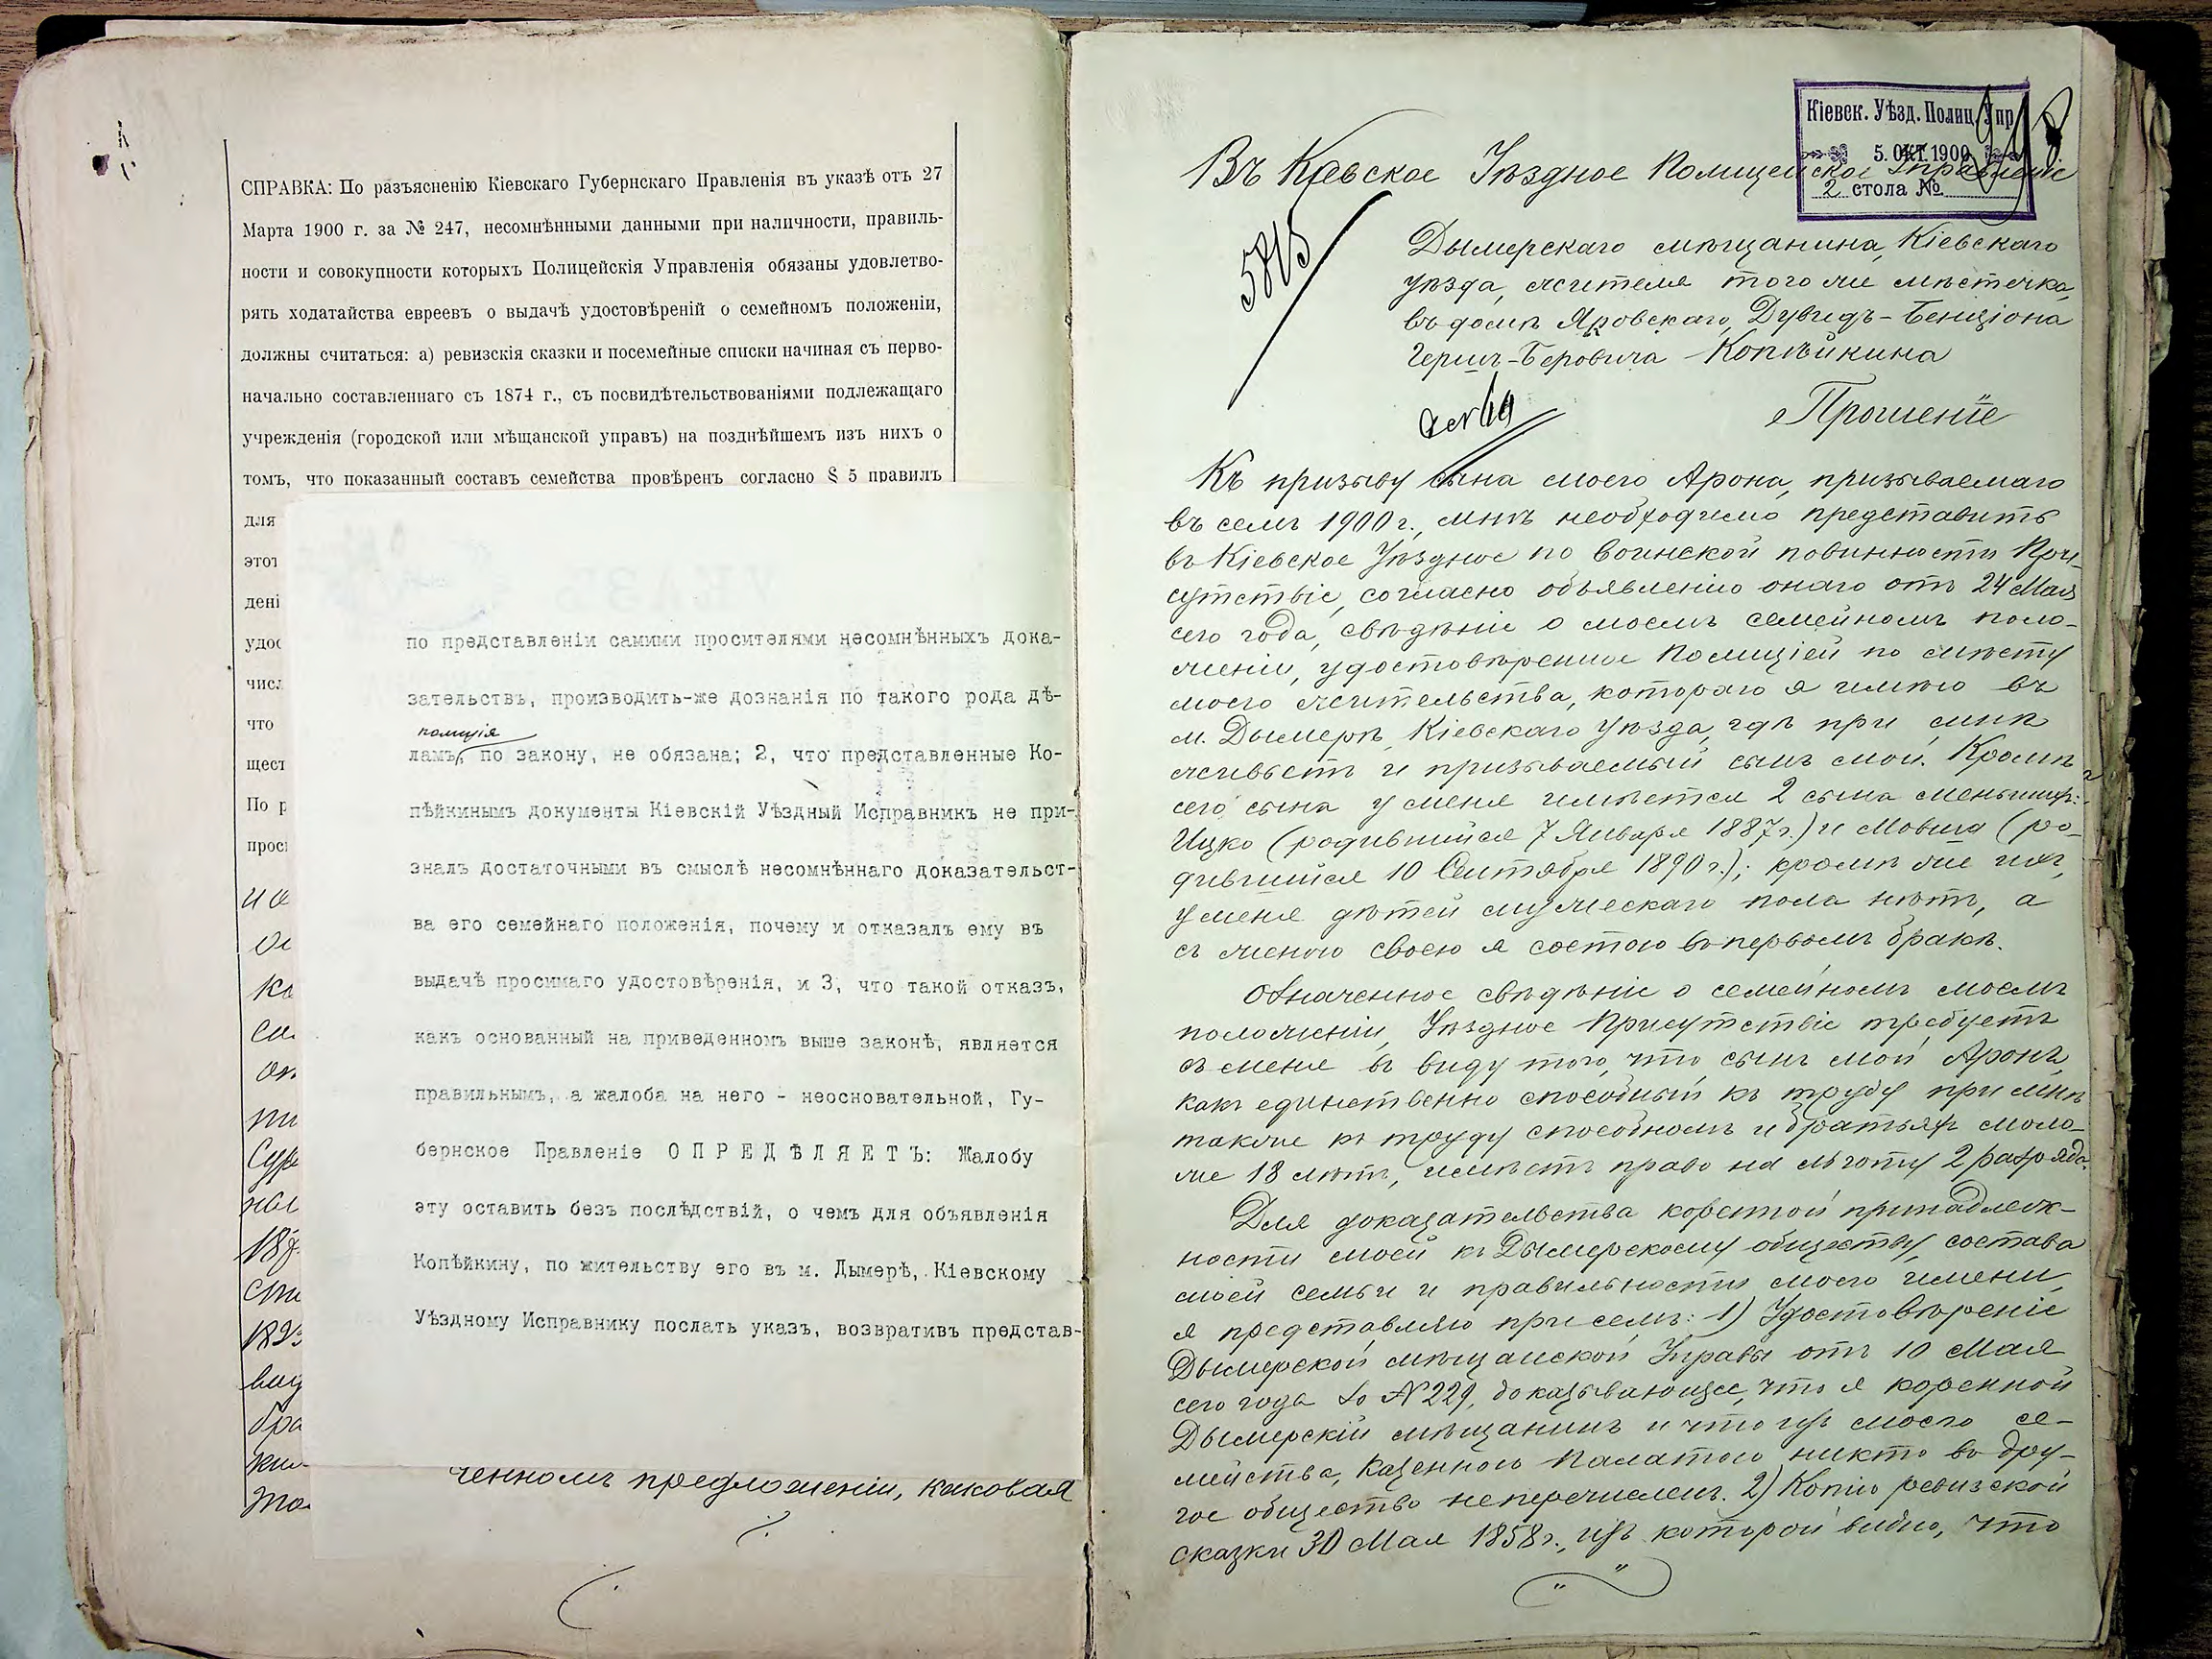 СПРАВКА: По разъясненію Кіевскаго Губернскаго Правленія въ указѣ отъ 27
Марта 1900 г. за № 247, несомнѣнными данными при наличности, правиль-
ности и совокупности которыхъ Полицейскія Управленія обязаны удовлетво-
рять ходатайства евреевъ о выдачѣ удостовѣреній о семейномъ положеніи,
должны считаться: а) ревизскія сказки и посемейные списки начиная съ перво-
начально составленнаго съ 1874 г., съ посвидѣтельствованіями подлежащаго
учрежденія (городской или мѣщанской управъ) на позднѣйшемъ изъ нихъ о
томъ, что показанный составъ семейства провѣренъ согласно § 5 правилъ
для
этот
дені
удос
числ
что
щест
По р
прос
по представленіи самими просителями несомнѣнныхъ дока-
зательствъ, производить-же дознанія по такого рода дѣ-
полиція
ламъ, по закону, не обязана; 2, что представленные Ко-
пѣйкинымъ документы Кіевскій Уѣздный Исправникъ не при-
зналъ достаточными въ смыслѣ несомнѣннаго доказательст-
ва его семейнаго положенія, почему и отказалъ ему въ
выдачѣ просимаго удостовѣренія, и 3, что такой отказъ,
какъ основанный на приведенномъ выше законѣ, является
правильнымъ, а жалоба на него - неосновательной, Гу-
бернское Правленіе ОПРЕДѢЛЯЕТЪ: Жалобу
эту оставить безъ послѣдствій, о чемъ для объявленія
Копѣйкину, по жительству его въ м. Дымерѣ, Кіевскому
Уѣздному Исправнику послать указъ, возвративъ представ-
ченномъ предложеніи, каковая
Кіевск. Уѣзд. Полиц. Упр.
5. ОКТ. 1900
2 стола №
Въ Кіевское Уѣздное Полицейское Управленіе
5815
Дымерскаго мѣщанина, Кіевскаго
уѣзда, жителя того же мѣстечка,
въ домѣ Яровскаго, Дувидъ-Бенціона
Герш-Беровича Копѣйкина
Прошеніе
Къ призыву сына моего Арона, призываемаго
въ семъ 1900 г., мнѣ необходимо представить
въ Кіевское Уѣздное по воинской повинности При-
сутствіе, согласно объявленію онаго отъ 24 Мая
сего года, свѣдѣніе о моемъ семейномъ поло-
женіи, удостовѣренное Полиціей по мѣсту
моего жительства, котораго я имѣю въ
м. Дымерѣ, Кіевскаго уѣзда, гдѣ при мнѣ
живетъ и призываемый сынъ мой. Кромѣ
сего сына у меня имѣется 2 сына меньших:
Ицко (родившийся 7 Января 1887 г.) и Мовша (ро-
дившийся 10 Сентября 1890 г.); кромѣ же ихъ,
у меня дѣтей мужескаго пола нѣтъ, а
съ женою своею я состою въ первомъ бракѣ.
Означенное свѣдѣніе о семейномъ моемъ
положеніи, Уѣздное Присутствіе требуетъ
съ меня въ виду того, что сынъ мой Аронъ,
какъ единственно способный къ труду при мнѣ
также къ труду способномъ и братьях моло-
же 18 лѣтъ, имѣетъ право на льготу 2 разряда.
Для доказательства коренной принадлеж-
ности моей къ Дымерскому обществу, состава
моей семьи и правильности моего имени,
я представляю при семъ: 1) Удостовѣреніе
Дымерской мѣщанской Управы отъ 10 Мая
сего года за N 229, доказывающее, что я коренной
Дымерскій мѣщанинъ и что изъ моего се-
мейства, Казенною Палатою никто въ дру-
гое общество не перечисленъ. 2) Копію ревизской
сказки 30 Мая 1858 г., изъ которой видно, что